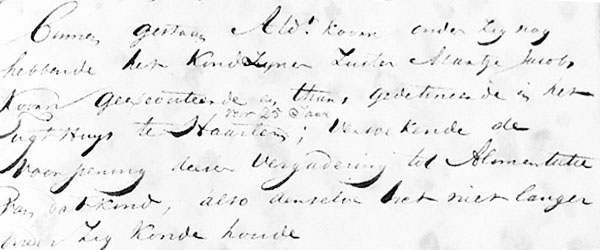 Binnen gestaan Ald.t Koorn onder Zig nog
hebbende het Kind Zyner Zuster Maartje Jacobs
Koorn Geexecuteerde en thans gedetineerde in het
voor 25 Jaar
Tugt Huys te Haarlem; Versoekende de
Voorspening deeser Vergadering tot Alimentatie
van dat Kind, also denselve het niet langer
onder Zig Konde houde